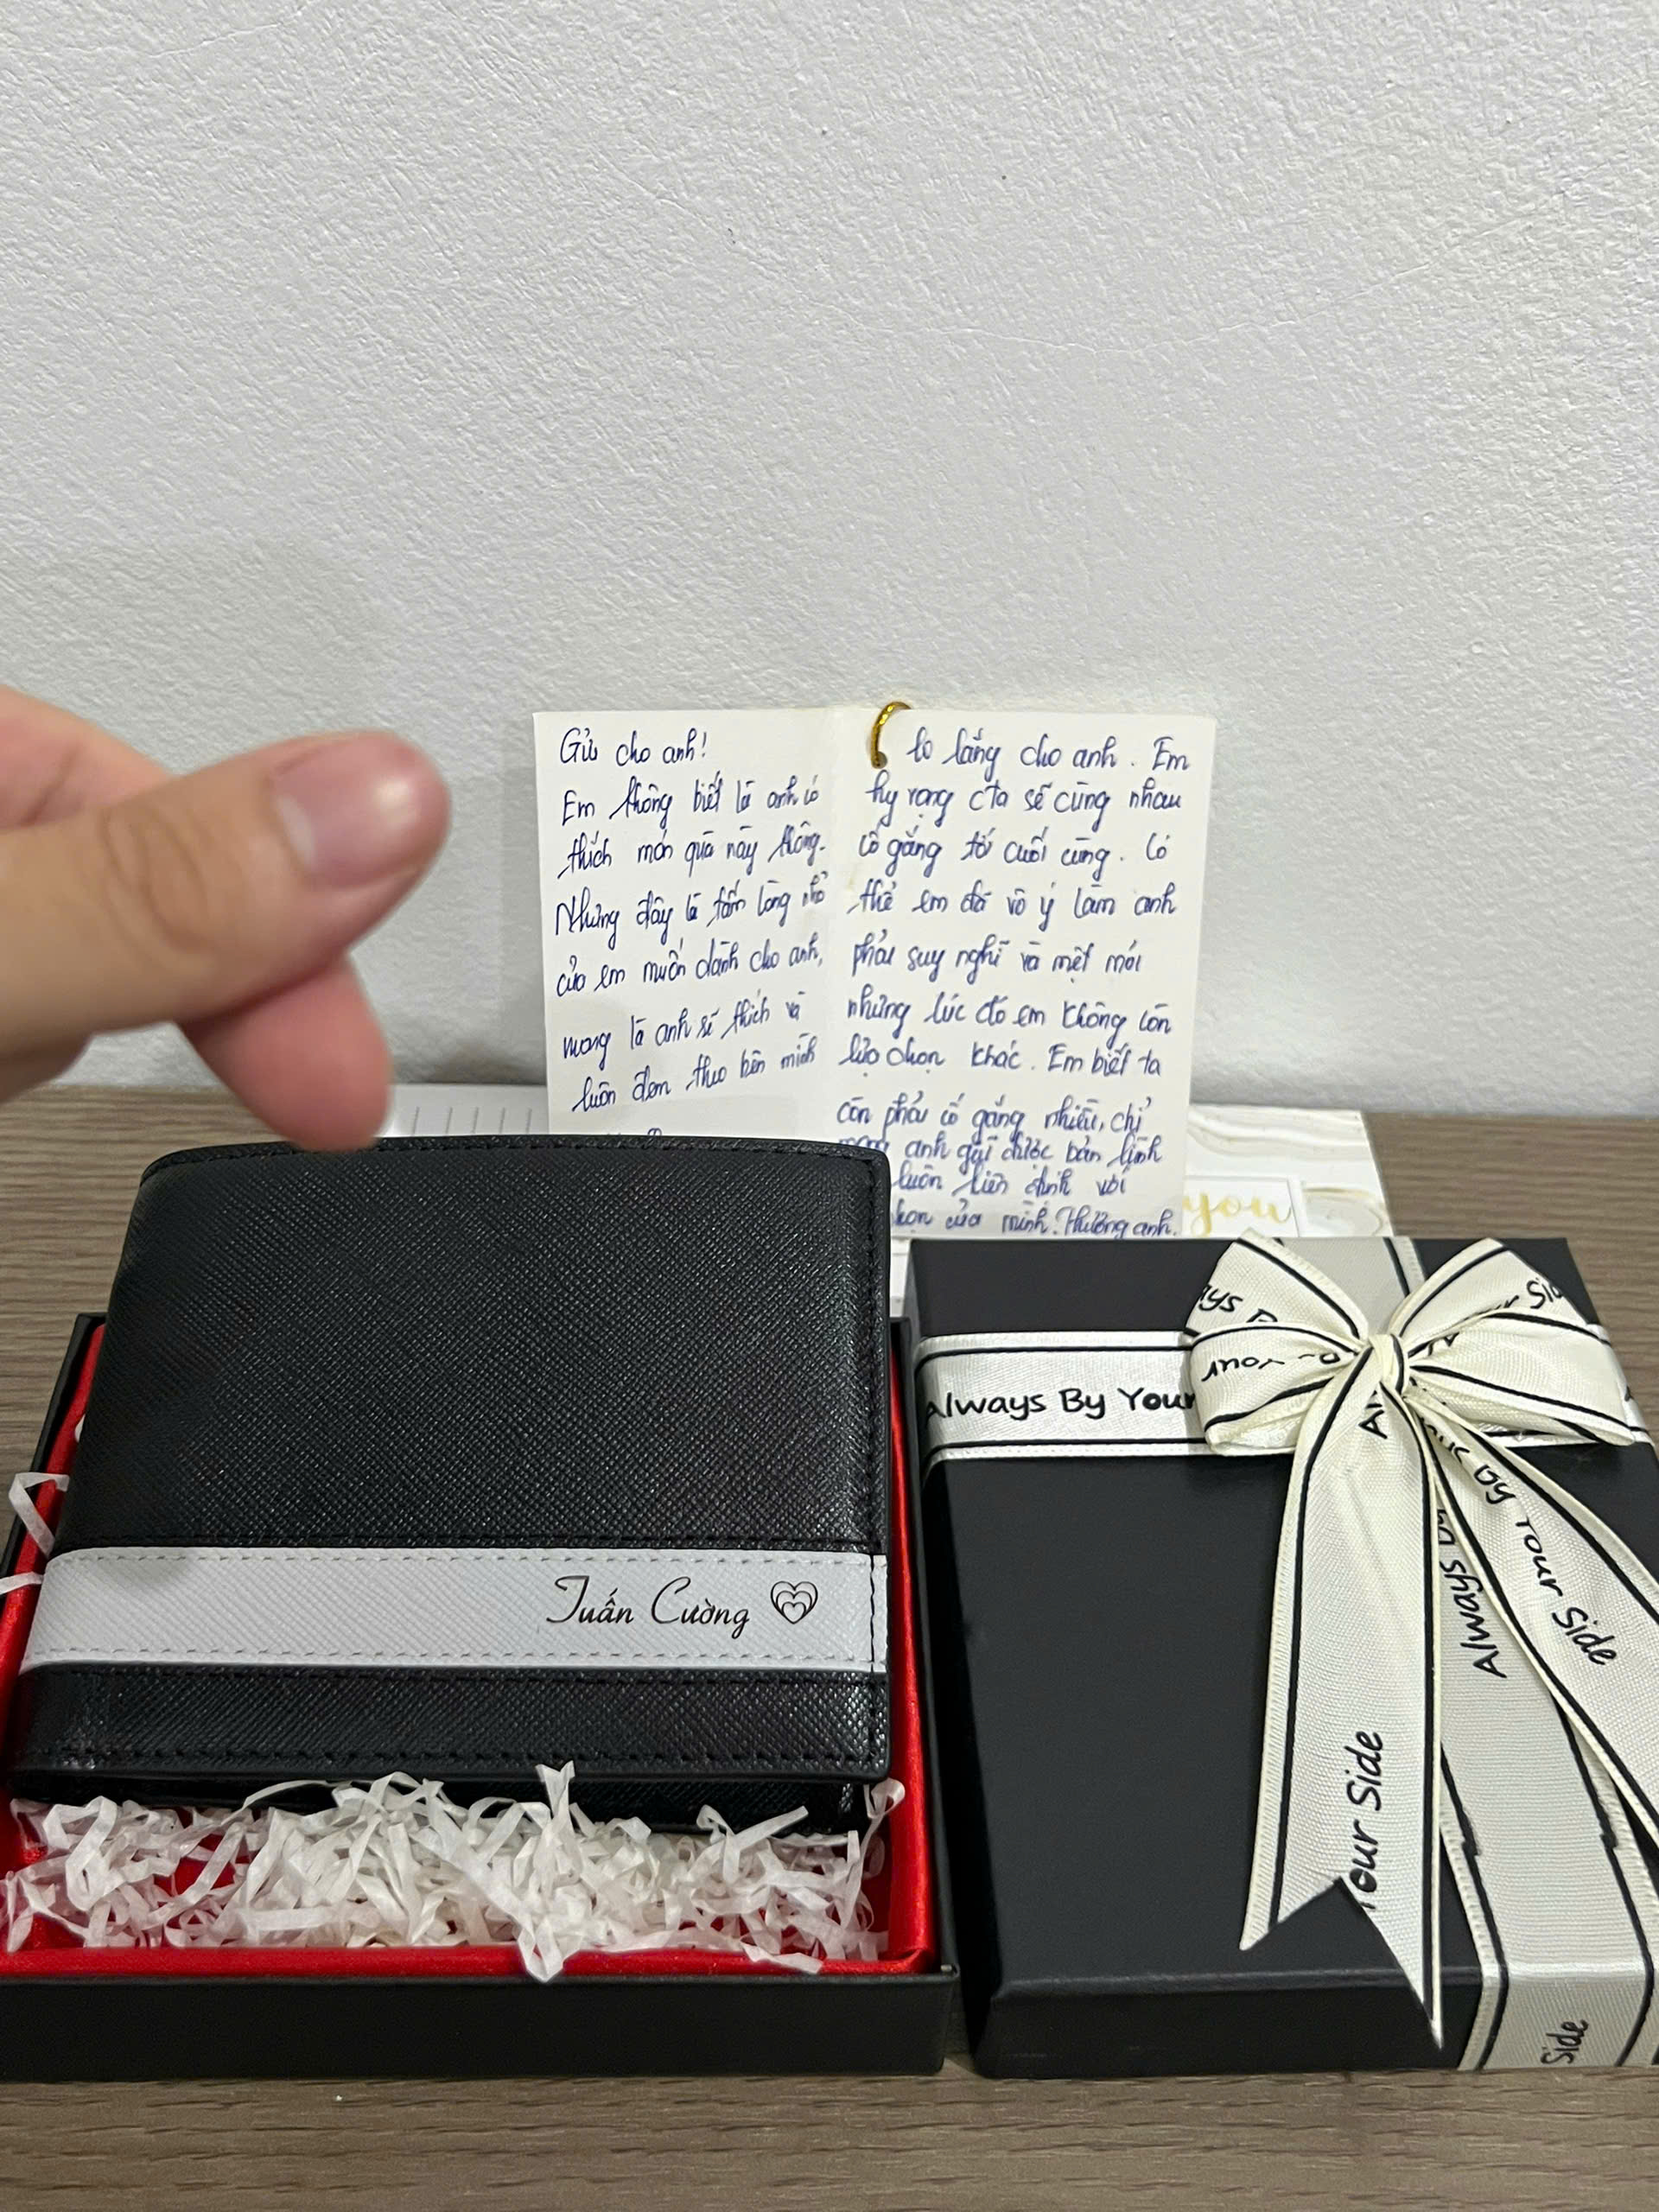 Gửi cho anh!
Em không biết là anh có
thích món quà này không.
Nhưng đây là tấm lòng nhỏ
của em muốn dành cho anh,
mong là anh sẽ thích và
luôn đem theo bên mình
lo lắng cho anh. Em
hy vọng cta sẽ cùng nhau
cố gắng tới cuối cùng. Có
thể em đã vô ý làm anh
phải suy nghĩ và mệt mỏi
nhưng lúc đó em không còn
lựa chọn khác. Em biết ta
còn phải cố gắng nhiều, chỉ
mong anh giữ được bản lĩnh
luôn kiên định với
chọn của mình. Thương anh.
you
Tuấn Cường
Always By Your
Your Side
Always By Your Side
Always
Side